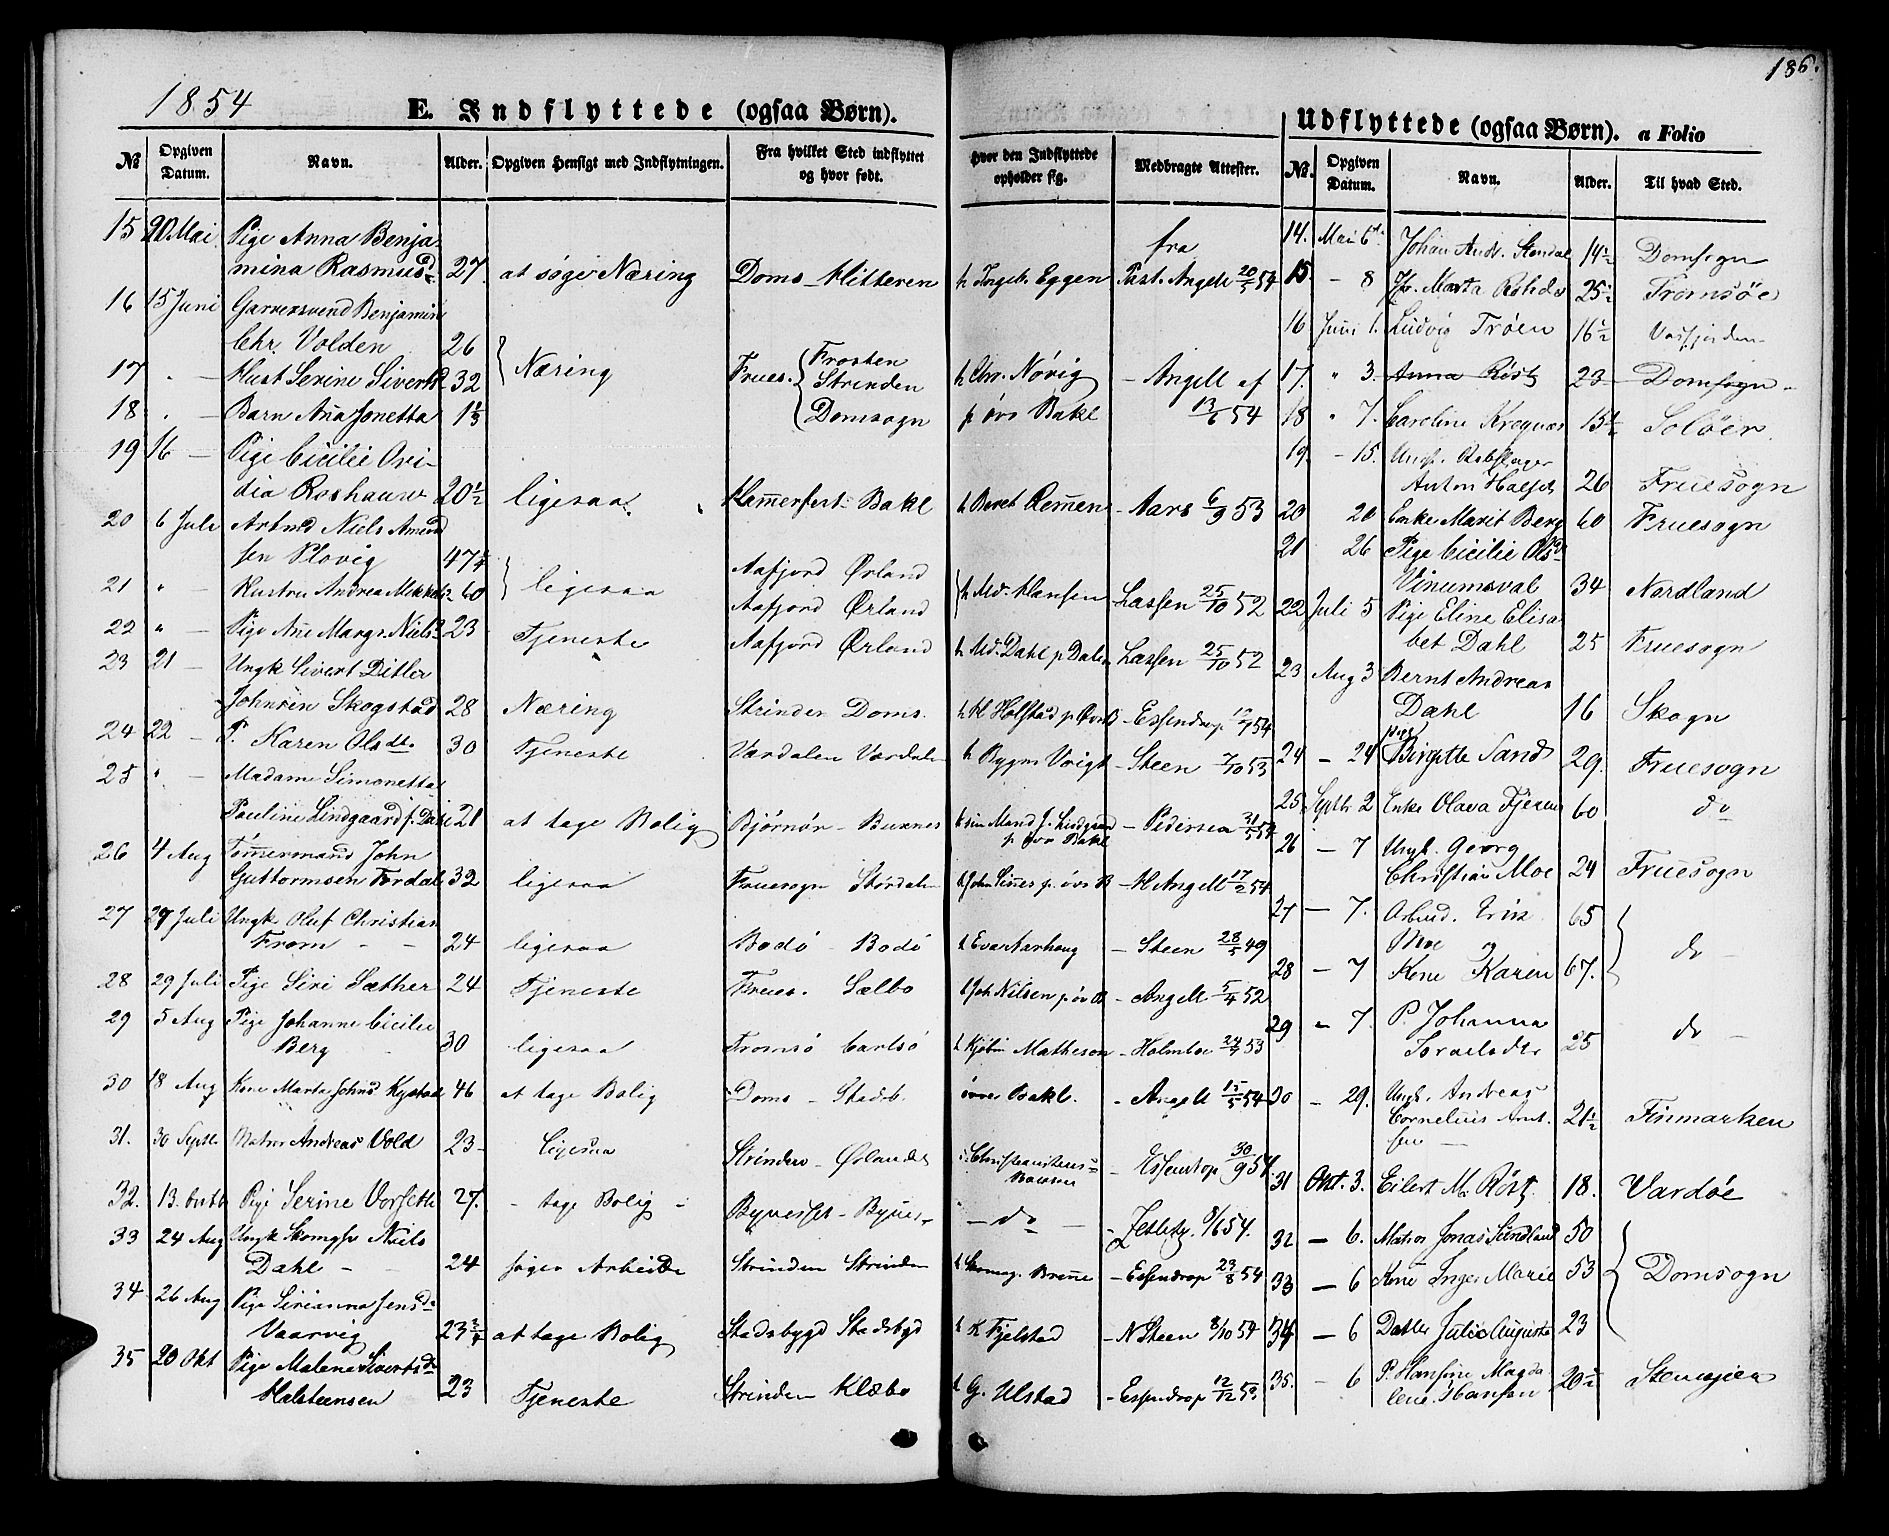 186.
1854
E. Indflyttede (ogsaa Børn).
Udflyttede (ogsaa Børn). a Folio
№ Opgiven Datum. Navn. Alder. Opgiven Hensigt med Indflytningen. Fra hvilket Sted indflyttet og hvor født. Hvor den Indflyttede opholder sig. Medbragte Attester.
№. Opgiven Datum. Navn. Alder. Til hvad Sted.
15 20 Mai Pige Anna Benja-
mina Rasmusd. 27 at søge Næring Doms Hitteren h Eggen fra Past. Angell 20/5 54
16 15 Juni Garversvend Benjamin
Chr. Volden 26 Næring Frues. Frosten
17 " — Hust Serine Sivertsd 32 Strinden h Chr. Növig — Angell af
18 " — Barn Ana Jonetta 1 1/3 Domsogn p övr Bakl 13/6 54
19 16 — Pige Cicilie Ovi-
dia Roshauw 20 1/2 ligesaa Hamerfest Bakl h Beret Remen — Aars 6/9 53
20 6 Juli Arbmd Niels Amund
sen Plovig 47 1/4 ligesaa Aafjord Ørland h Md. Hansen Lassen 25/10 52
21 " — Hustru Andrea 60 Aafjord Ørland
22 " — Pige Ane Margr. Nielsd 23 Tjeneste Aafjord Ørland h Md. Dahl p Lassen 25/10 52
23 21 — Ungk Sivert Ditler
Johnsen Skogstad 28 Næring Strinden Doms. h Holstad p — Essendrop 54
24 22 — P. Karen Olsdt. 30 Tjeneste Værdalen Værdalen h Bygm Voigt — Steen 7/10 53
25 " — Madame Simonetta
Pauline Lindgaard f. 21 at tage Bolig Bjørnør — h sin Mand J. — Pedersen 31/5 54
p övr Bakl
26 4 Aug Tømmermand John
Guttormsen Fordal 32 ligesaa Fruesogn Stördalen h John p. övr B — H Angell 17/2 54
27 29 Juli Ungk Oluf Christian
From — — 24 ligesaa Bodö — Bodö h Evar Aarhaug — Steen 28/5 49
28 29 Juli Pige Siri Sæther 24 Tjeneste Frues. Sælbo h Joh Nilsen p öv B — Angell 5/4 52
29 5 Aug Pige Johanne Cicilie
Berg 30 ligesaa Tromsö Carlsö h Kjöbm Matheson — Holmboe 53
30 18 Aug Kone Marta Johnsd Kystad 46 at tage Bolig Doms — Stadsb. övre Bakl. — Angell 15/5 54
31. 30 Septbr Matros Andreas Vold 23 — ligesaa Strinden — Ørlandet Christianstens- — Essendrop 30/9 54
32. 13. Octb Pige Serine Vorseth 27. — tage Bolig — Bynesset — Bynes — do — 8/6 54.
33 24 Aug Ungk Skomgsv Niels
Dahl — — 24 søger Arbeide Strinden Strinden h Skomag. Brenne — Essendrop 23/8 54
34 26 Aug Pige Sirianna Jensd.
Vaarvig 23 3/4 at tage Bolig Stadsbygd Stadsbyd h K Fjelstad — N Steen 8/10 54
35 20 Okt Pige Malene Sivertsd
Halsteensen 23 Tjeneste Strinden Klæbo h G. Ulstad — Essendrop 12/12 53
14. Mai 6t. Johan Andr. 14 1/2 Domsogn
15 — 8 Marta Rohde 25 1/2 Tromsöe
16 Juni 1. Ludvig Tröen 16 1/2
17. " 3. Anna Röst 23 Domsogn —
18 " 7. Caroline 15 1/2 Solöer.
19. — 15. Ungk.
Anton 26 Fruesogn
20 20 Enke Marit Berg 60 Fruesogn
21 26 Pige Cicilie Olsd
Vinumsval 34 Nordland
22 Juli 5 Pige Eline Elisa
bet Dahl 25 Fruesogn
23 Aug 3 Bernt Andreas
Dahl 16 Skogn
24 — 24 Pige Birgitte Sand 29. Fruesogn
25. Septb. 2 Enke Olava 60 do
26 — 7 Ungk. Georg
Christian Moe 24 Fruesogn
27 — 7. Arbmd. Erik 65
Moe
28 — 7 Kone Karen 67. do —
29 — 7. P. Johanna
Israelsdtr 25 do —
30 — 29. Ungk. Andreas
Cornelius Arnt-
sen — 21 1/2 Finmarken
31 Okt. 3. Eilert M. Röst 18. Vardöe
32 — 6. Matros Jonas Sundland 50
33 — 6 Kone Inger Marie 53 Domsogn
34 — 6 Datter Julie Auguste 23
35. — 6 P. Hansine Magda
lene Hansen 20 1/2